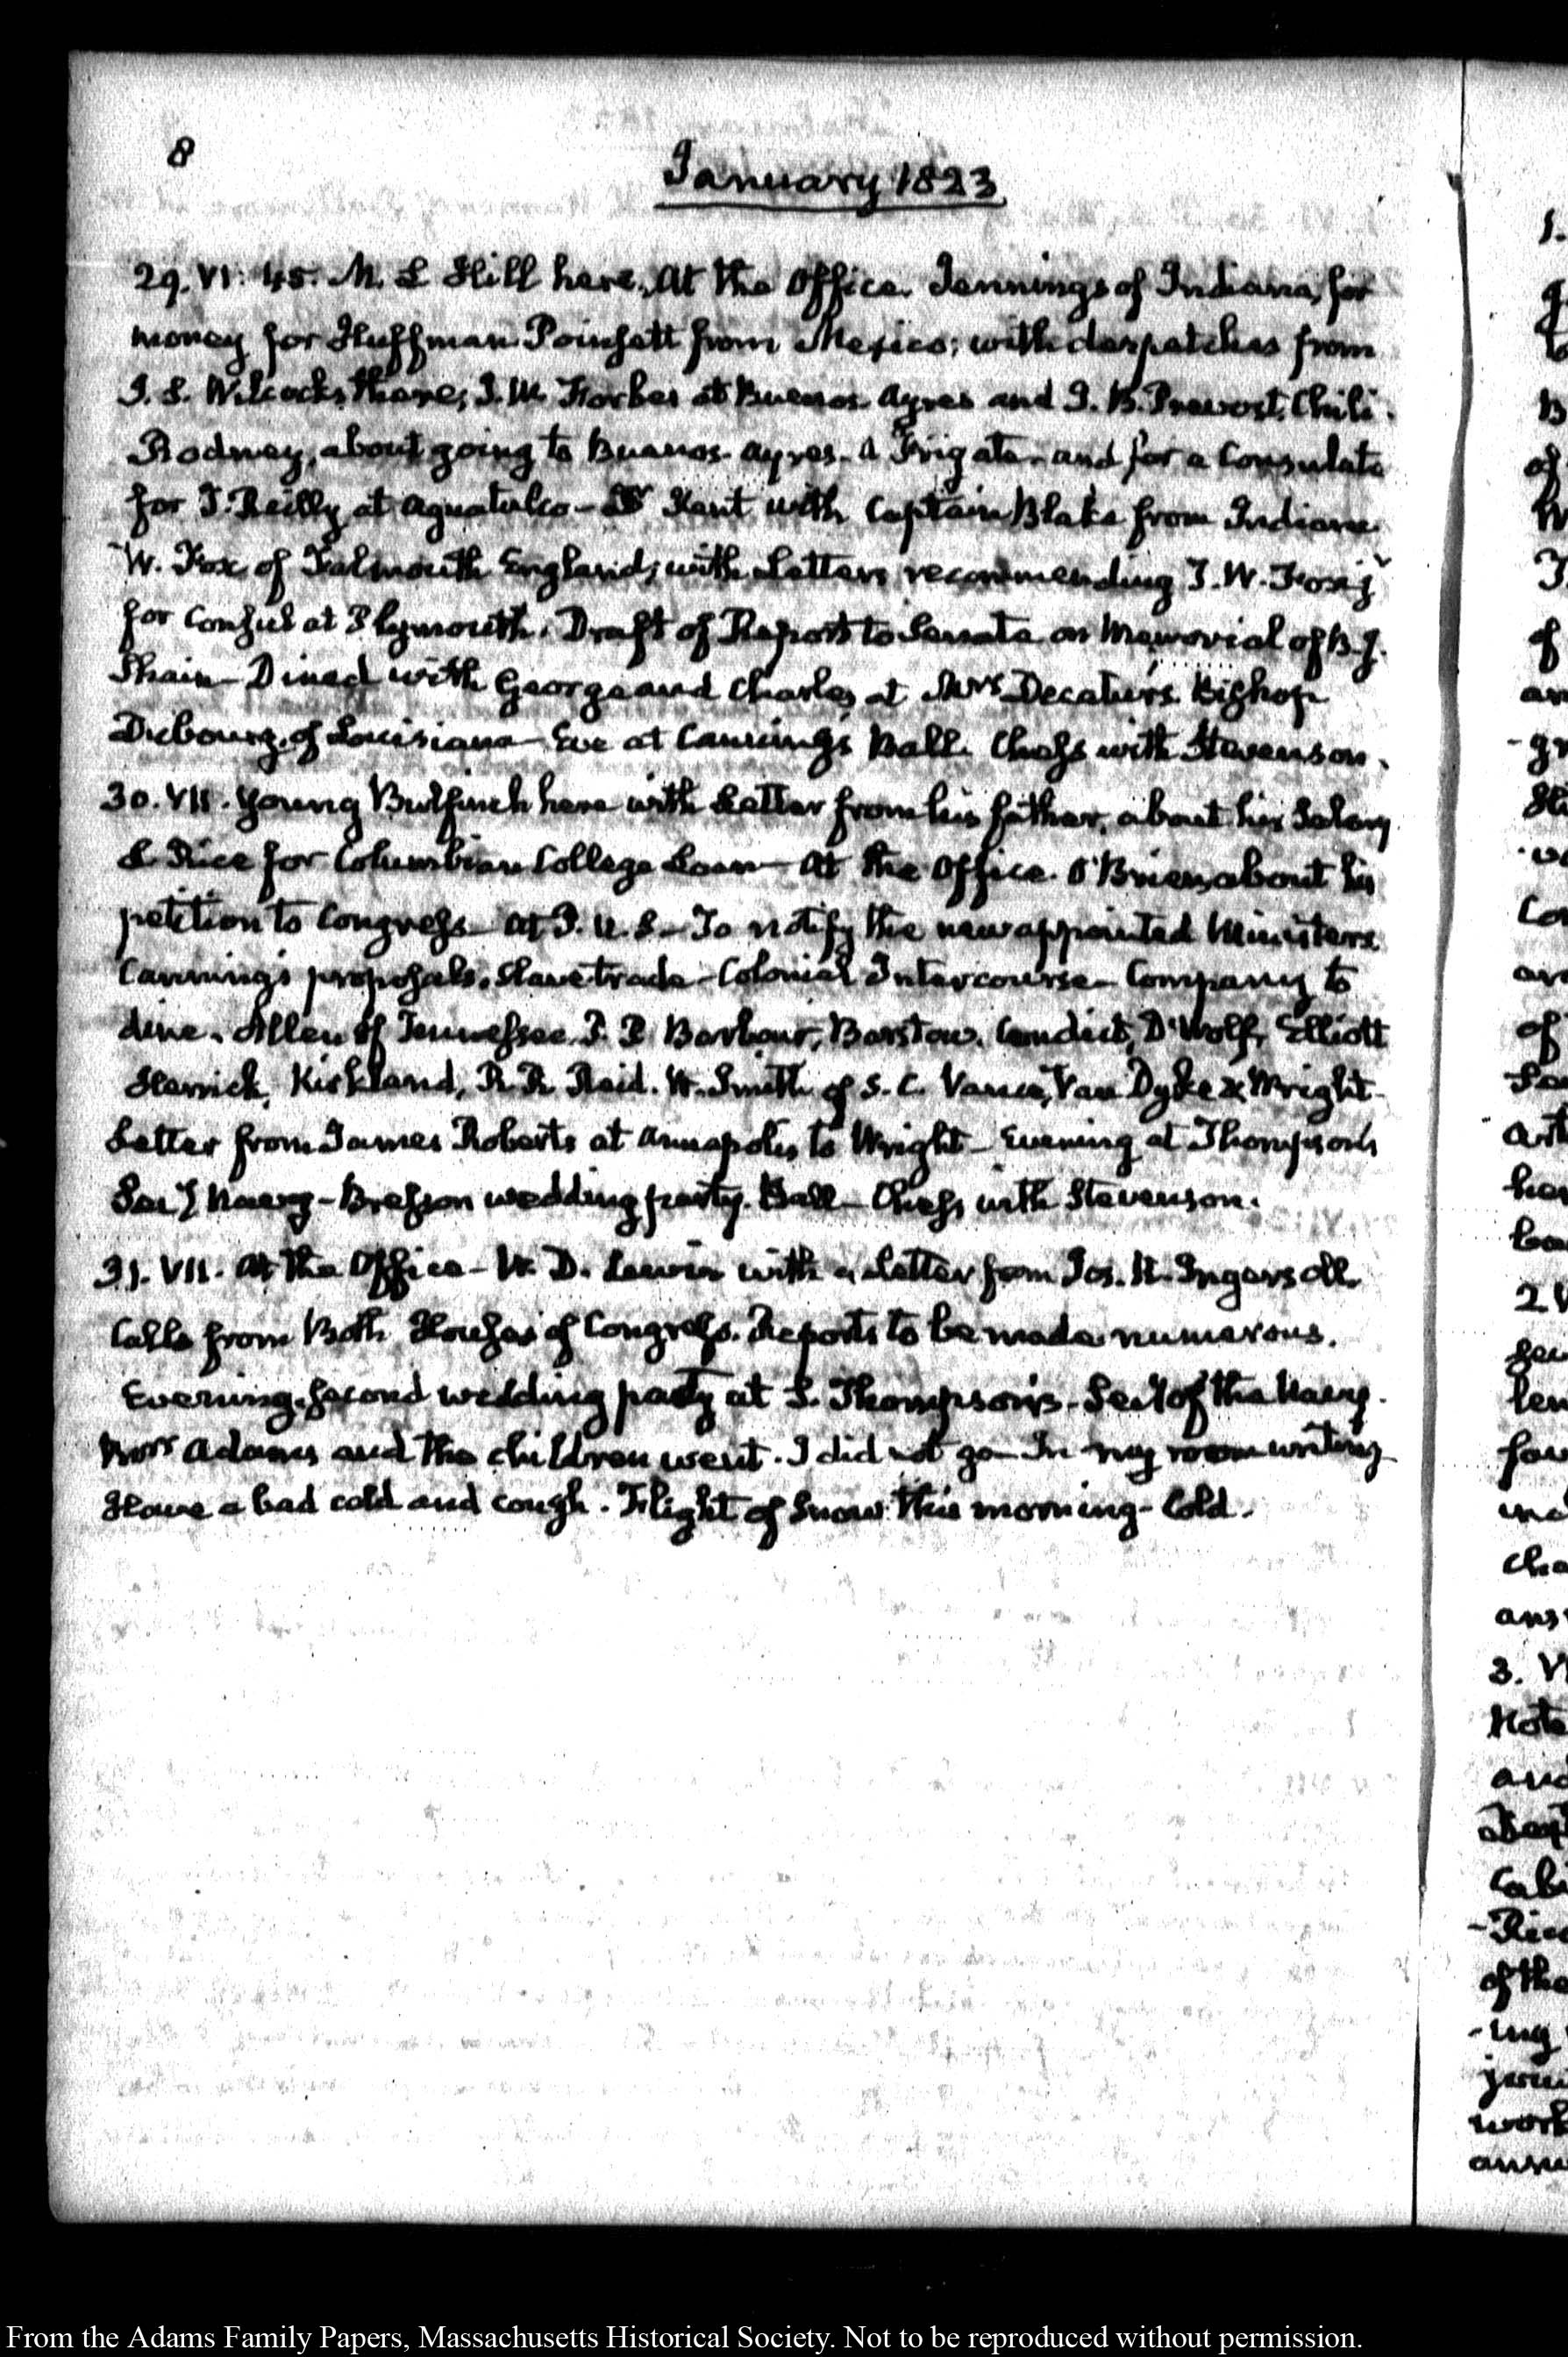 8
January 1823
29. VI: 45. M. L Hill here. At the Office. Jennings of Indiana, for
money for Huffman Poinsett from Mexico; with despatches from
J. S. Wilcocks there; J. M. Forbes at Buenos Ayres and J. B. Prevost, Chili.
Rodney, about going to Buenos-Ayres. A Frigate and for a Consulate
for J. Reilly at Aguatulco - Dr Kent with Captain Blake from Indiana
W. Fox of Falmouth England; with Letters recommending T. W. Fox jr
for Consul at Plymouth. Draft of Report to Senate on Memorial of B. J.
Shain - Dined with George and Charles at Mrs Decatur's. Bishop
Dubourg of Louisiana - Eve at Canning's Ball. Chess with Stevenson.
30. VII. Young Bulfinch here with Letter from his father, about his Salary
L Rice for Columbian College Loan - At the Office. O'Brien, about his
petition to Congress - At P. U. S. - To notify the new appointed Ministers
Canning's proposals. Slave trade - Colonial Intercourse - Company to
dine. Allen of Tennessee. P. P Barbour, Barstow, Condict, D'Wolf, Elliott
Herrick, Kirkland, R. R. Reid. W. Smith of S. C. Vance, Van Dyke & Wright
Letter from James Roberts at Annapolis to Wright - Evening at Thompson's
Secy Navy - Bresson wedding party. Ball - Chess with Stevenson.
31. VII. At the Office - W. D. Lewis with a Letter from Jos. R. Ingersoll.
Calls from Both Houses of Congress. Reports to be made numerous.
Evening, second wedding party at S. Thompson's - Secy of the Navy.
Mrs Adams and the children went. I did not go - In my room writing
Have a bad cold and cough. Flight of Snow this morning - Cold.
From the Adams Family Papers, Massachusetts Historical Society. Not to be reproduced without permission.